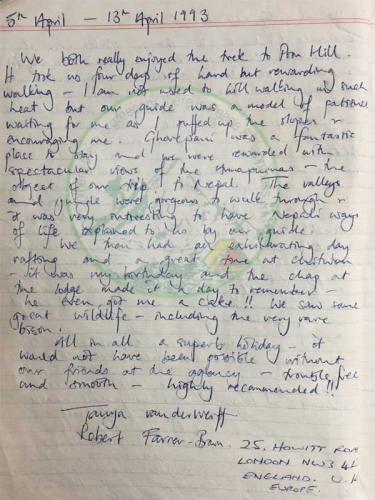 5th April — 13th April 1993
We both really enjoyed the trek to Pon Hill.
It took us four days of hard but rewarding
walking – I am not used to hill walking in such
heat but our guide was a model of patience
waiting for me as I puffed up the slopes &
encouraging me. Ghorepani was a fantastic
place to stay and we were rewarded with
spectacular views of the Annapurnas – the
object of our trip to Nepal. The valleys
and jungle were gorgeous to walk through &
it was very interesting to have Nepali ways
of life explained to us by our guide.
We then had an exhilarating day
rafting and a great time at Chitwan
– it was my birthday and the chap at
the lodge made it a day to remember –
he even got me a cake!! We saw some
great wildlife – including the very rare
bison.
All in all a superb holiday – it
would not have been possible without
our friends at the agency – trouble free
and smooth – highly recommended!!
Tanya vanderwerff
Robert Farrer-Brown.
25, HOWITT ROAD
LONDON NW3 4L
ENGLAND. U.K
EUROPE.